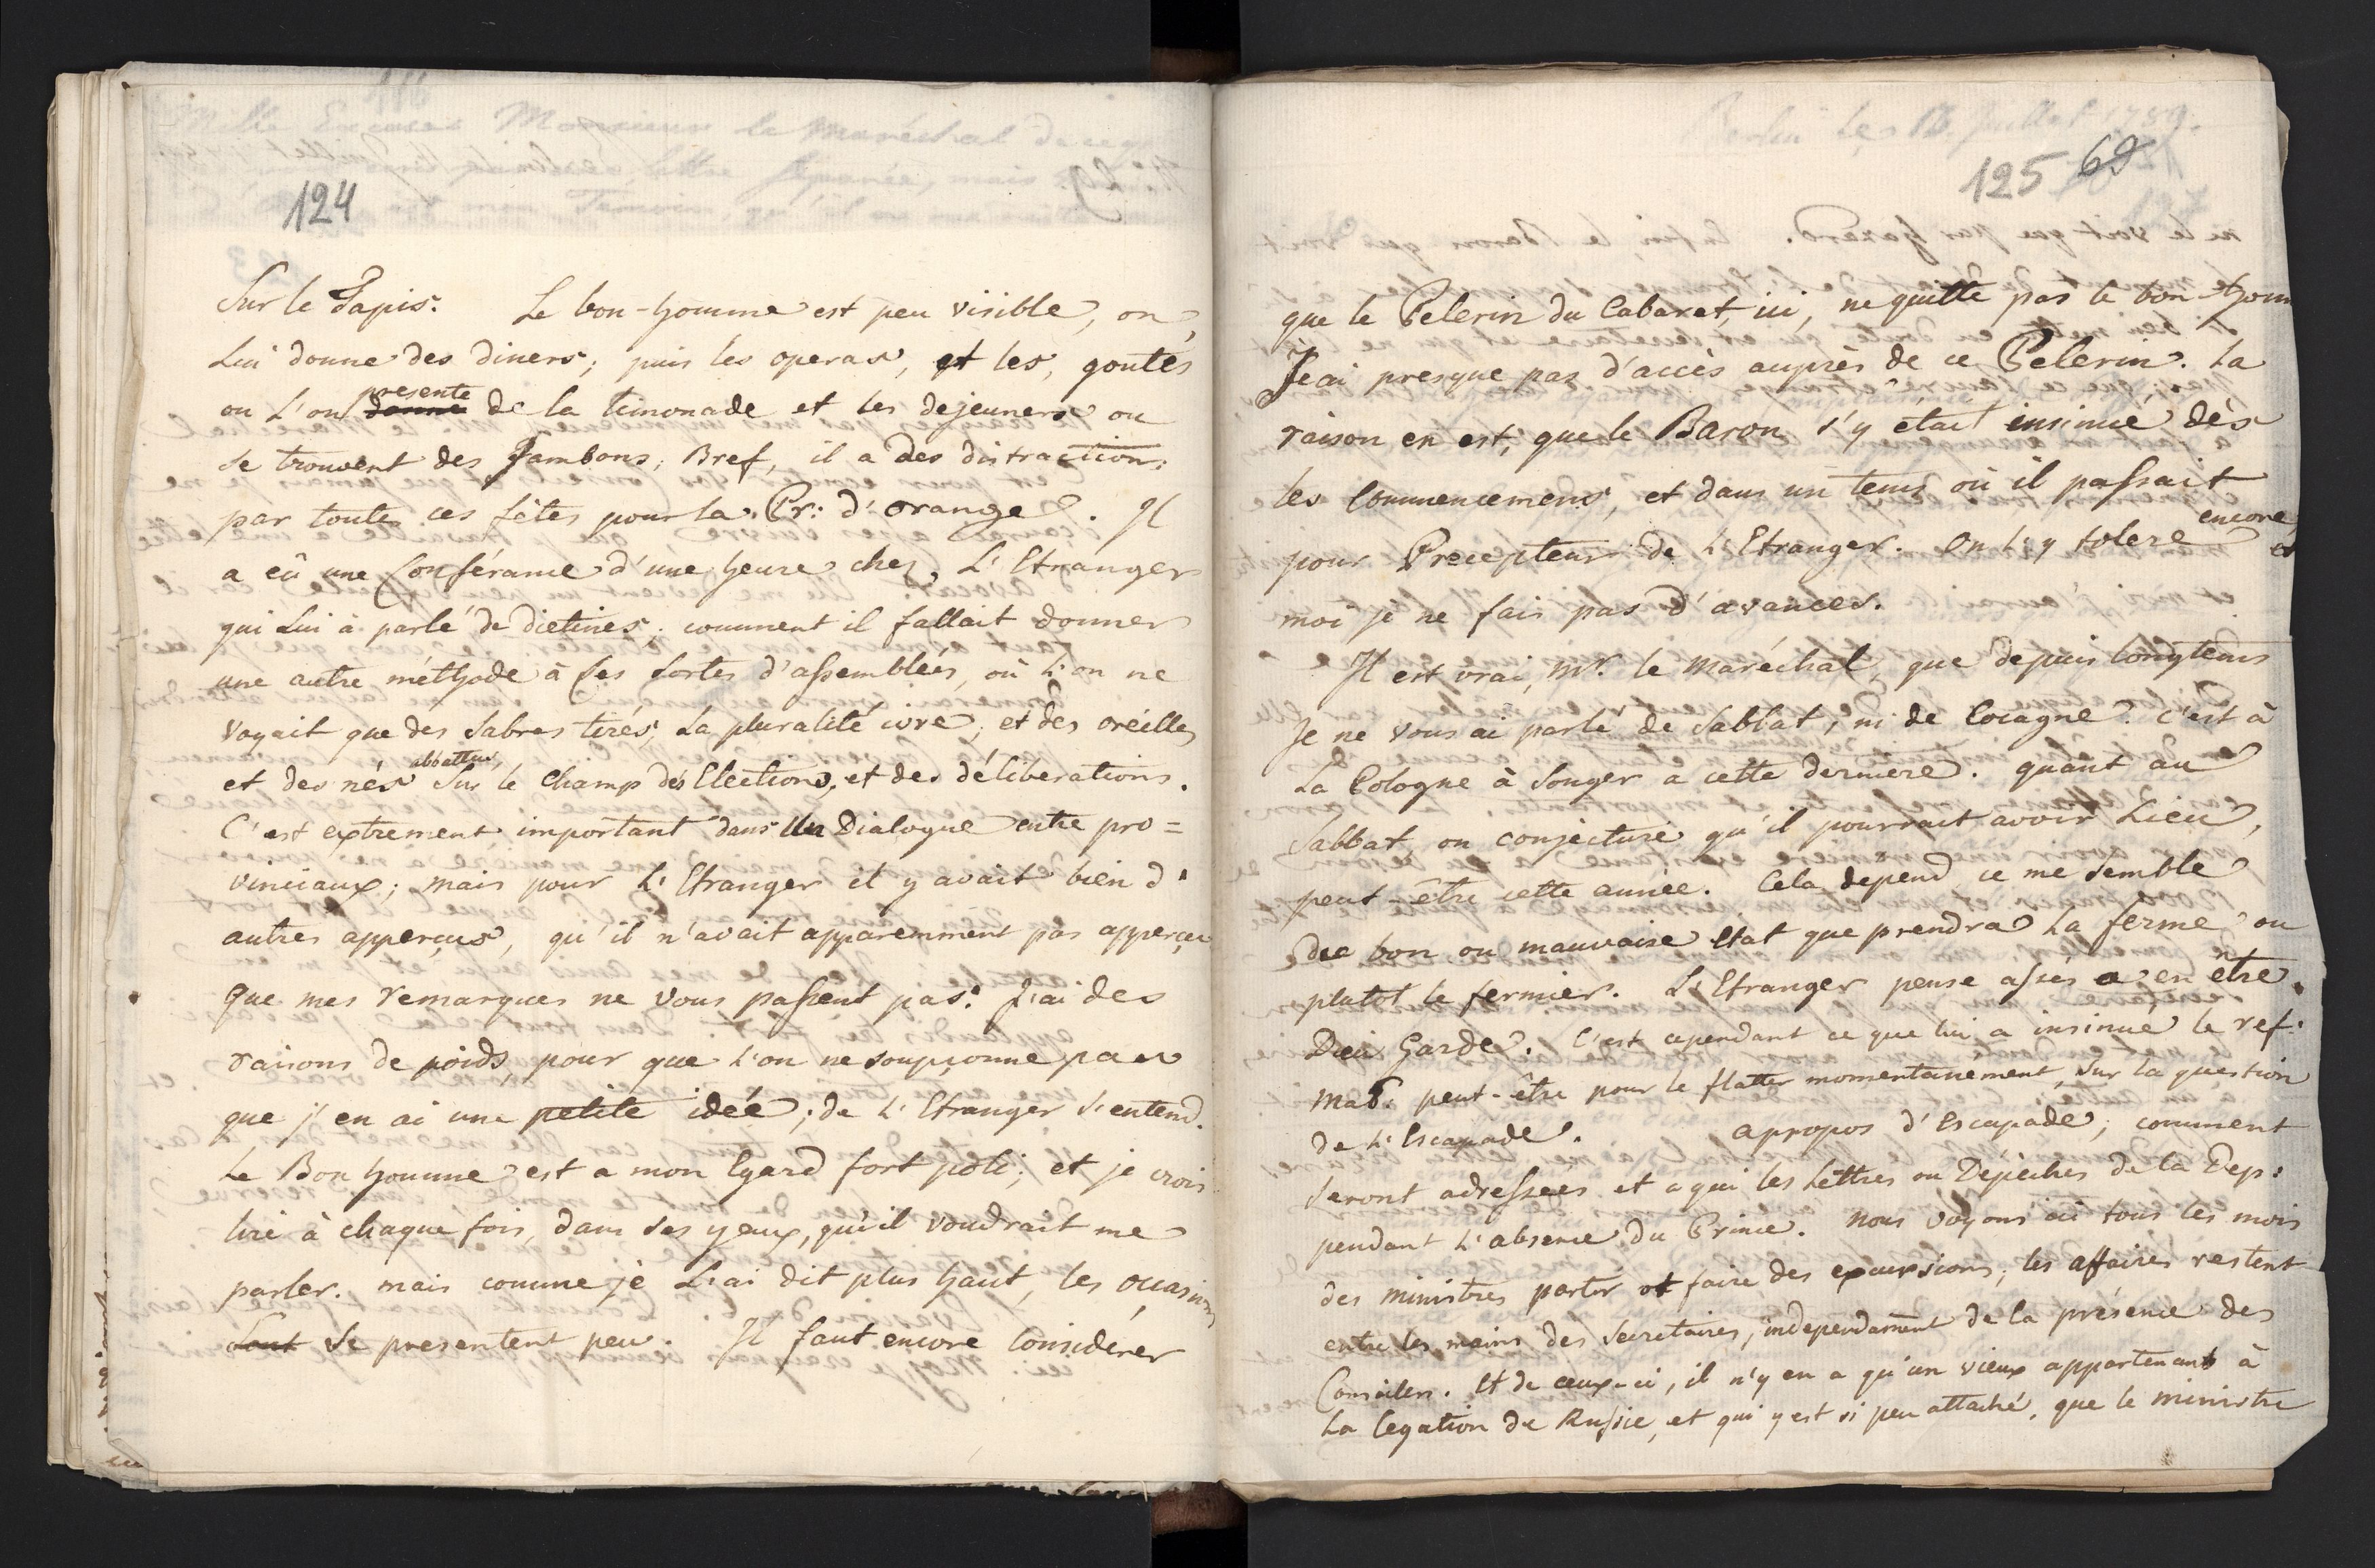 124
Sur le Tapis. Le bon-homme est peu visible, on
Lui donne des diners; puis les operas, et les goutés
ou l'on donne presente de la limonade et les dejeuners ou
se trouvent des Jambons; Bref, il a des distractions
par toutes ces fêtes pour la Pr: d'orange. Il
a eû une Conférance d'une heure chez L'Etranger
qui Lui à parlé de dietines; comment il fallait donner
une autre méthode à ses sortes d'assembleés, où l'on ne
voyait que des Sabres tirés, La pluralité ivre, et des oreilles
et des nés abbattus sur le Champ des Elections, et des déliberations.
C'est extrement important dans un Dialogue entre pro=
vinciaux; mais pour L'Etranger il y avait bien d'
autres apperçus, qu'il n'avait apparemment pas apperçu
que mes remarques ne vous passent pas: J'ai des
raisons de poids, pour que l'on ne soupçonne pas
que j'en ai une petite idée; de L'Etranger s'entend.
Le Bon homme est a mon Egard fort poli; et je crois
lire à chaque fois, dans ses yeux, qu'il voudrait me
parler. mais comme je L'ai dit plus haut, les occasions
sont se presentent peu. Il faut encore Considérer
125 69
que le Pelerin du Cabaret, ici, ne quitte pas le bon hom
Je ai presque pas d'accès auprès de ce Pelerin. La
raison en est, que le Baron s'y était insinué dès
les Commencemens, et dans un tems où il passait
pour Precepteur de L'Etranger. On L'y tolere encore et
moi je ne fais pas d'avances.
Il est vrai, Mr. le Maréchal, que depuis longtems
Je ne vous ai parlé de Sabbat, ni de Cocagne. C'est à
La Pologne à Songer a cette derniere. quant au
Sabbat, on conjecture qu'il pourrait avoir Lieu,
peut-être cette année. Cela depend ce me semble
du bon ou mauvaise Etat que prendra La ferme ou
plutot le fermier. L'Etranger pense assés a en être.
Dieu Garde. C'est cependant ce que lui a insinué le ref:
Mad: peut-être pour le flatter momentanément, sur la question
de L'Escapade. apropos d'Escapade; comment
seront adressées et a qui les Lettres ou Dépeches de la Dep:
pendant L'absence du Prince. Nous voyons ici tous les mois
des Ministres partir et faire des excursions; les affaires restent
entre les mains des Secretaires, independament de la présence des
Conseilers. Et de ceux-ci, il n'y en a qu'un vieux appartenant à
La Legation de Russie, et qui y est si peu attaché, que le Ministre